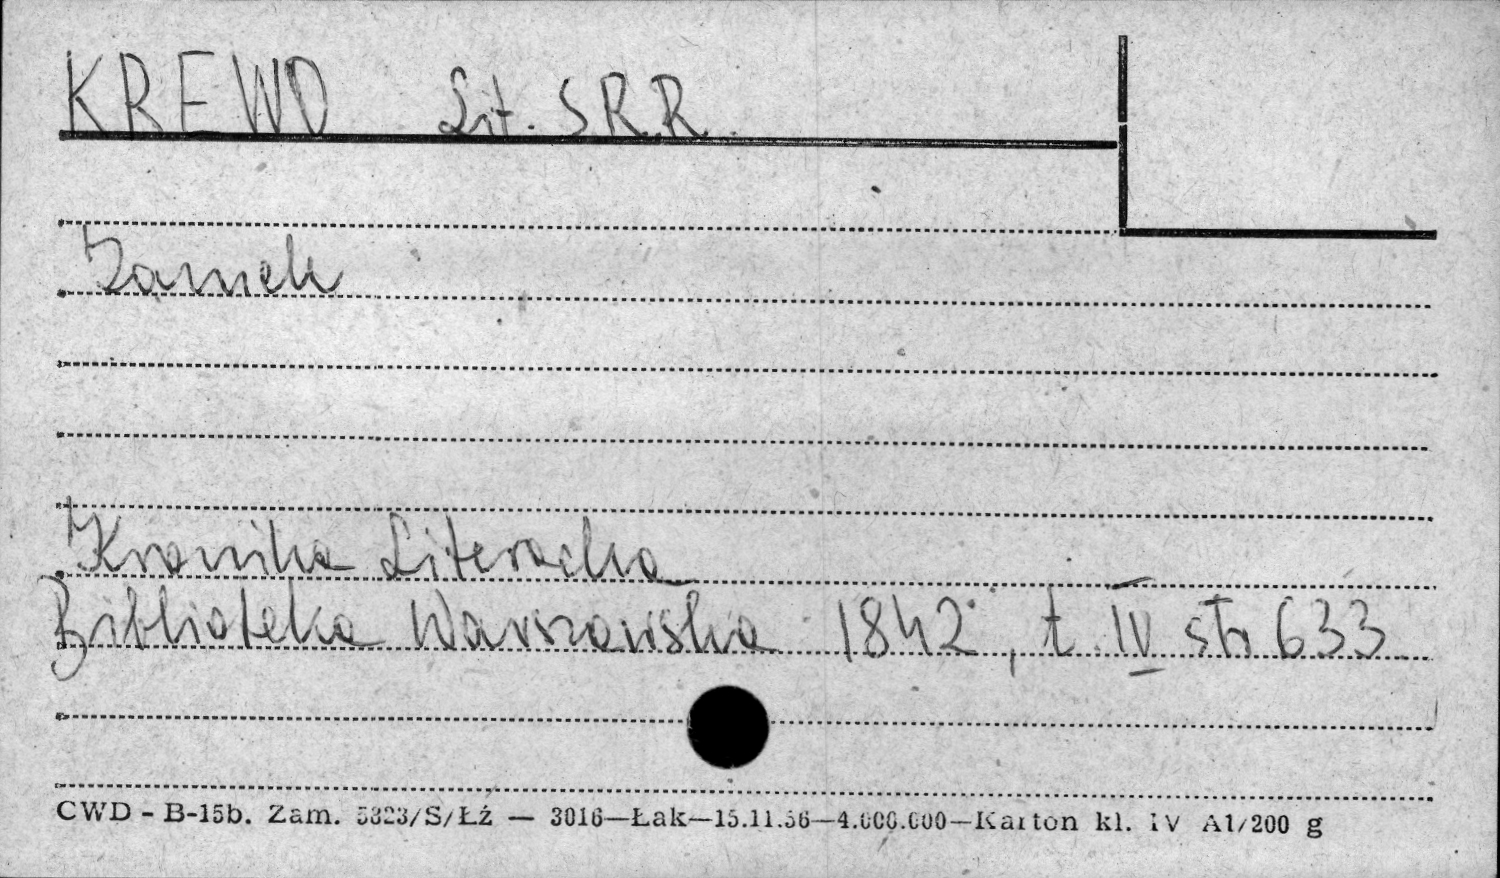 KREWO Lit. S.R.R.
Zamek
Kronika Literacka
Biblioteka Warszawska 1842, t. IV str 633
CWD - B-15b. Zam. 5323/S/Łź — 3016—Łak—15.11.56—4.000.000—Karton kl. IV A1/200 g